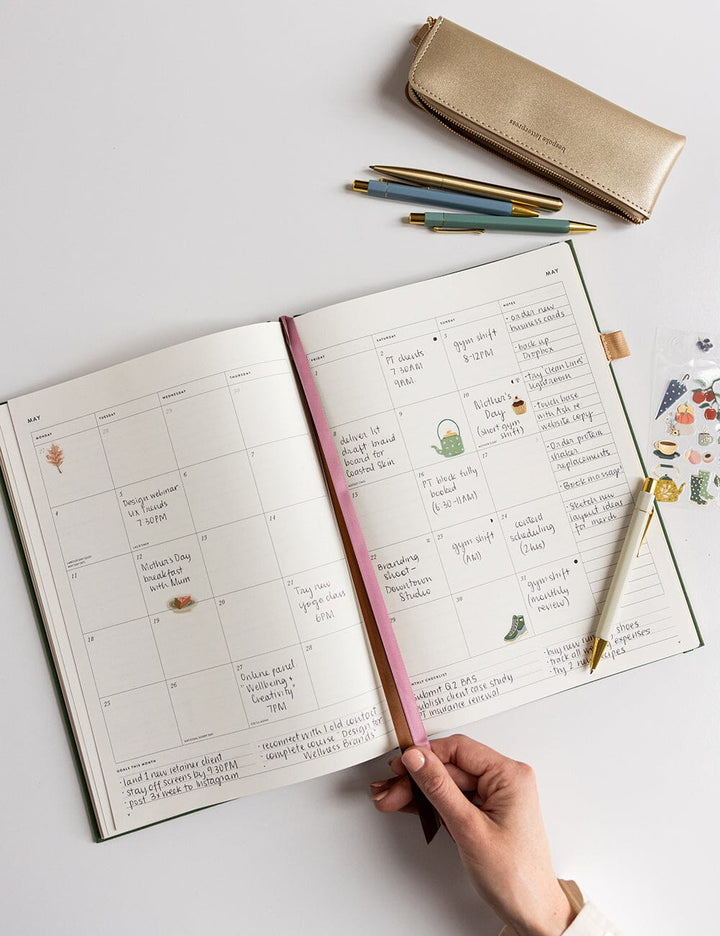 bespoke letterpress
MAY
MONDAY
TUESDAY
WEDNESDAY
THURSDAY
27
28
29
30
4
5
Design webinar
UX trends
7:30PM
6
7
11
12
Mother's Day
breakfast
with Mum
13
14
18
19
20
21
Try new
yoga class
6PM
25
26
27
Online panel
"Wellbeing +
Creativity"
7PM
28
GOALS THIS MONTH
· land 1 new retainer client
· stay off screens by 9:30PM
· post 3x week to Instagram
· reconnect with 1 old contact
· complete course - "Design for
Wellness Brands"
MAY
FRIDAY
SATURDAY
SUNDAY
NOTES
1
2
PT clients
7:30AM
9AM
3
gym shift
8-12PM
8
deliver 1st
draft brand
board for
Coastal Skin
9
10
Mother's
Day
(short gym
shift)
MOTHER'S DAY
15
16
PT block fully
booked
(6:30-11AM)
17
22
Branding
shoot-
Downtown
Studio
23
gym shift
(AM)
24
content
scheduling
(2hrs)
30
31
gym shift
(monthly
review)
· order new
business cards
· back up
Dropbox
· Try 'Clean Lines'
Lightroom
· Touch base
with Ash re
website copy
· Order protein
shaker
replacements
· Book massage!
· Sketch new
layout ideas
for merch
MONTHLY CHECKLIST
submit Q2 BAS
publish client case study
PT insurance renewal
· buy new shoes
· track all expenses
· Try 2 recipes